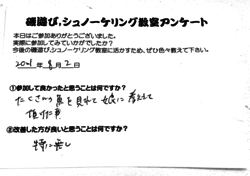 磯遊び、シュノーケリング教室アンケート
本日はご参加ありがとうございました。
実際に参加してみていかがでしたか?
今後の磯遊び、シュノーケリング教室に活かすため、ぜひ色々教えて下さい。
2021年8月2日
①参加して良かったと思うことは何ですか?
たくさんの魚を見れて 娘に 教えて
頂けた事
②改善した方が良いと思うことは何ですか?
特に無し